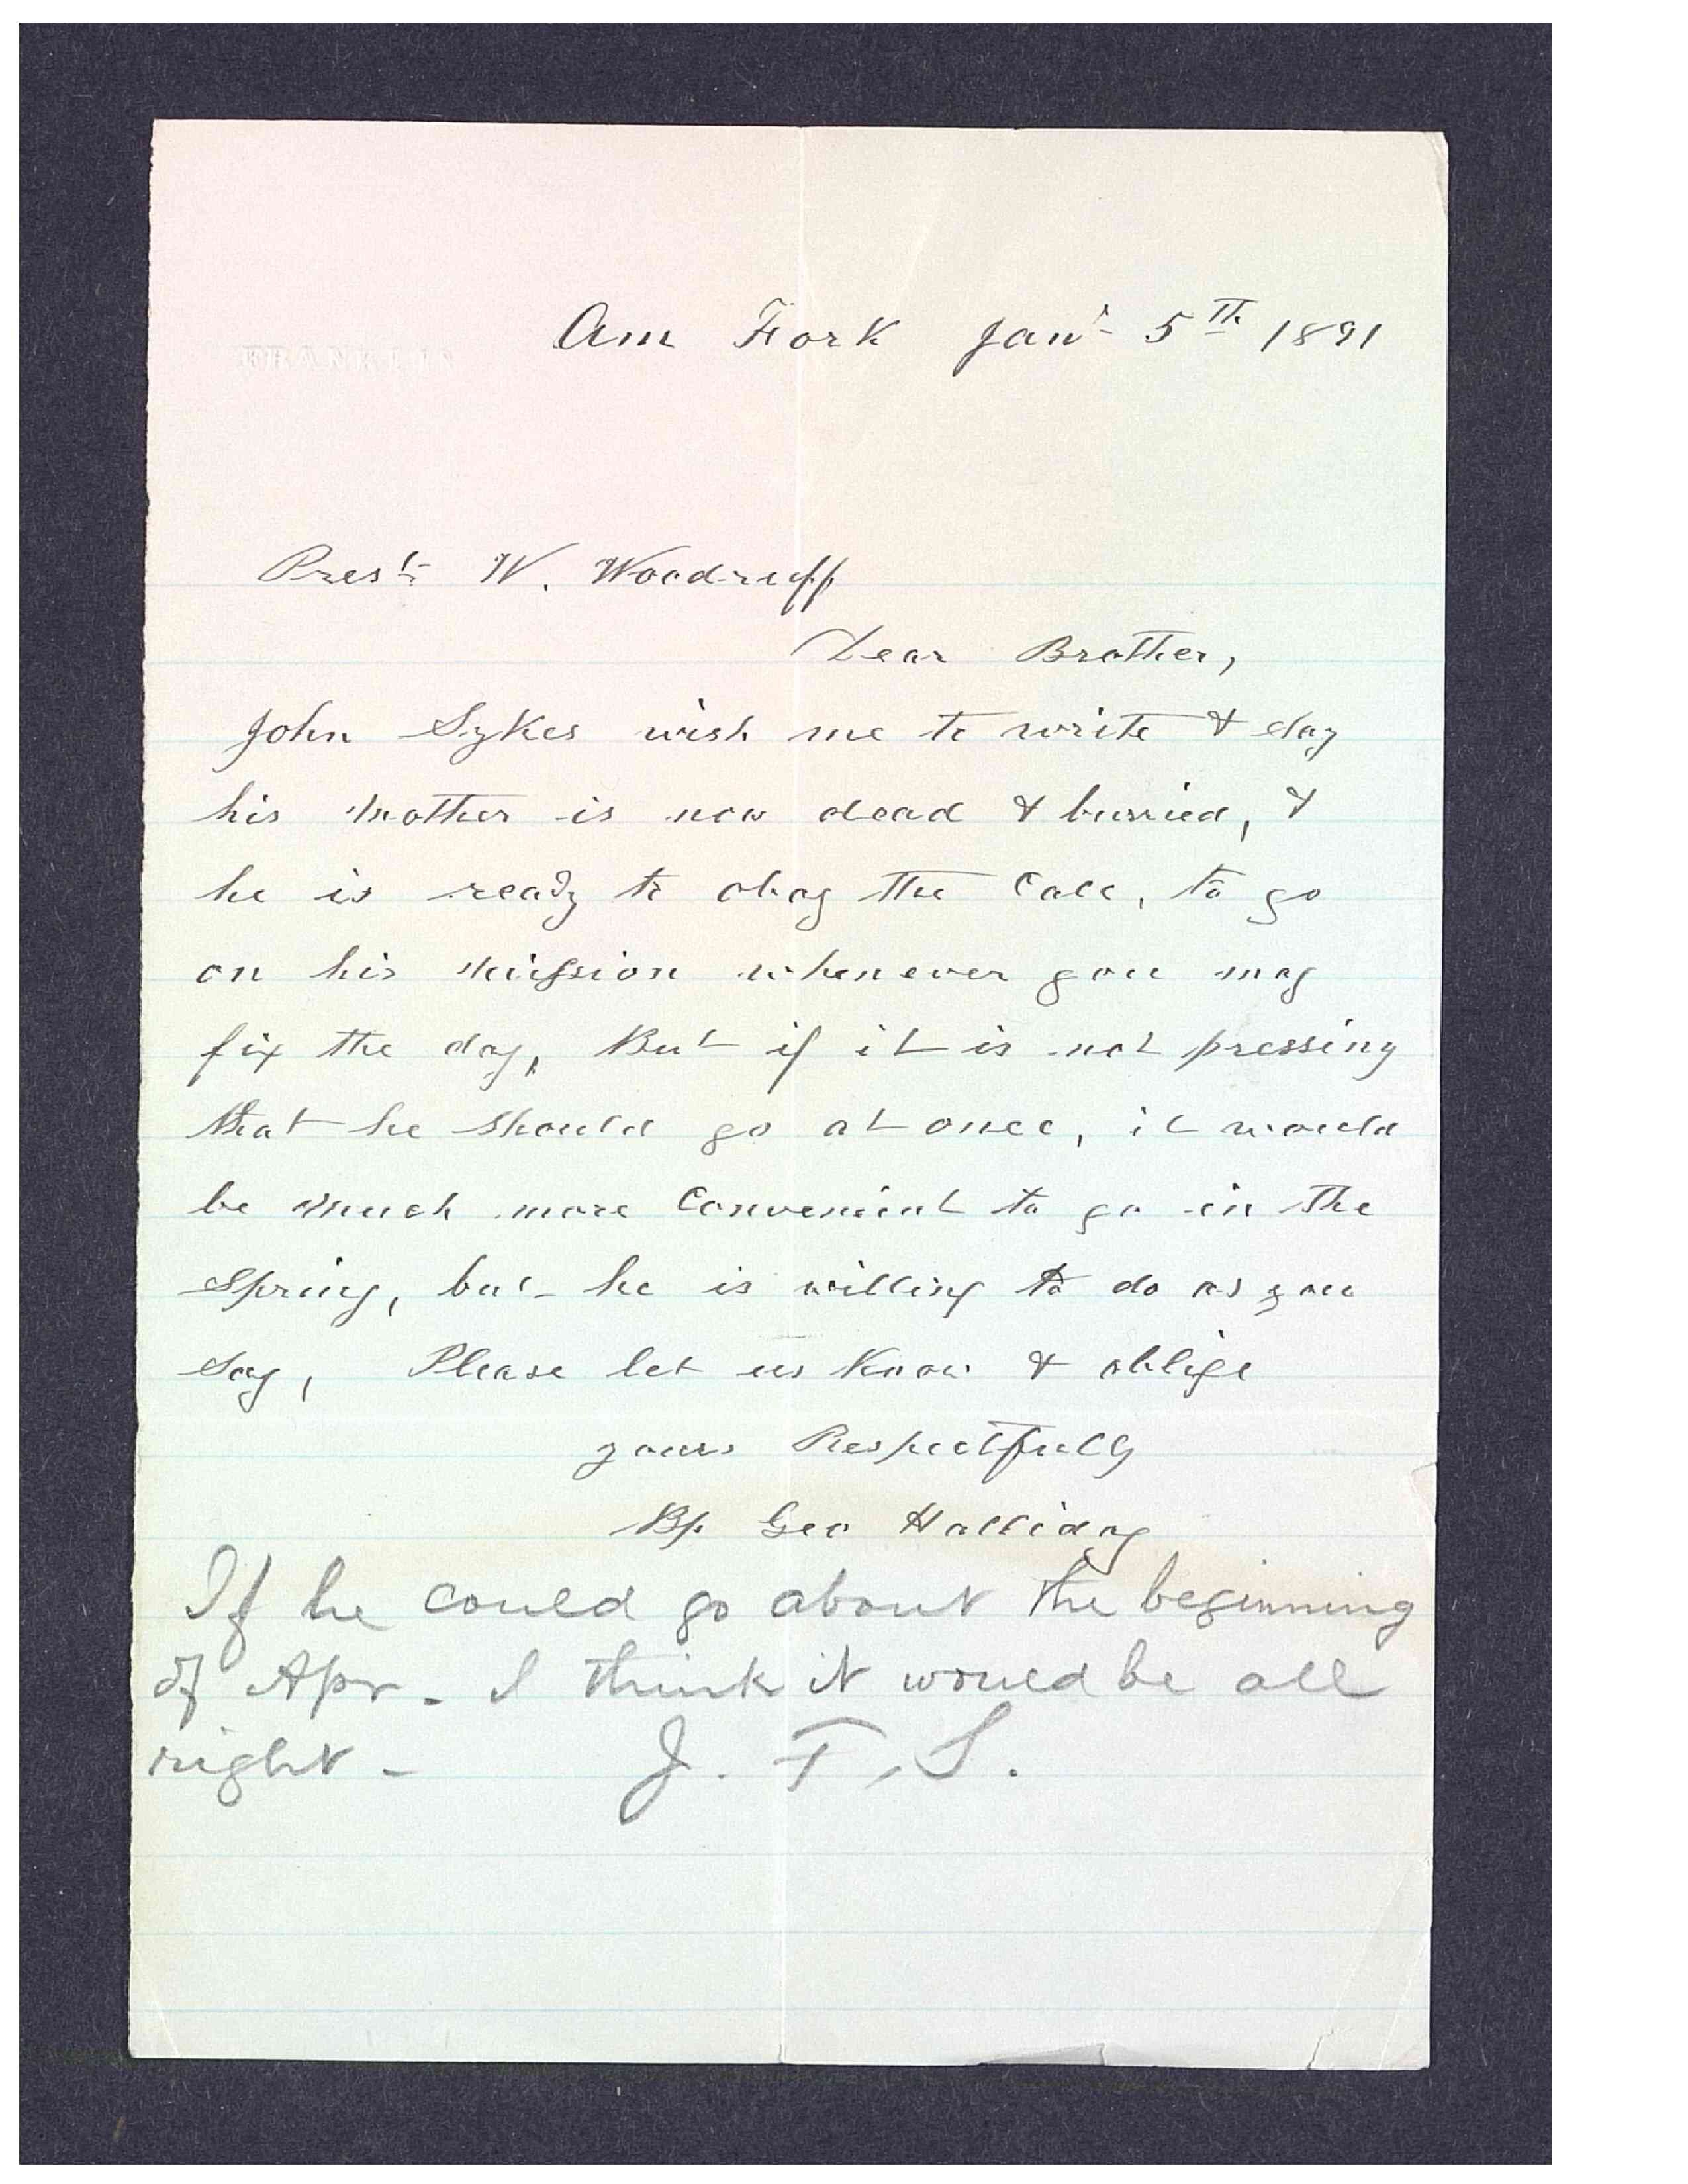 FRANKLIN
Am Fork Jany 5th 1891
Prest W. Woodruff
Dear Brother,
John Sykes wish me to write & say
his Mother is now dead & burried, &
he is ready to obay the Call, to go
on his Mission whenever you may
fix the day, But if it is not pressing
that he should go at once, it would
be much more Convenient to go in the
Spring, but he is willing to do as you
say, Please let us Know & oblige
yours Respectfully
Bp. Geo Halliday
If he could go about the beginning
of Apr. I think it would be all
right - J. F. S.